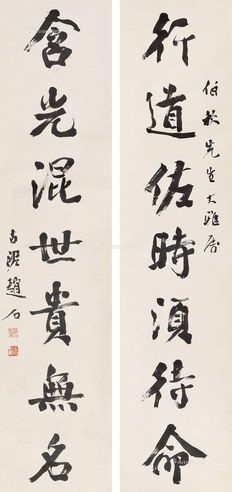 伯秋先生大雅属
行道佐時須待命
含光混世貴無名
古泥趙石